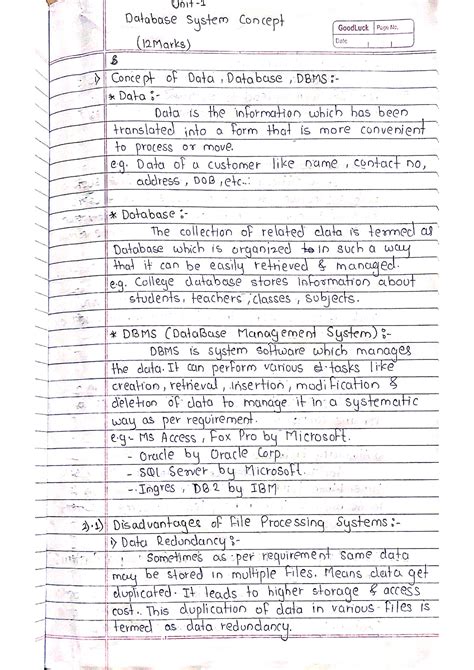 Unit-1
Database System Concept
(12Marks)
GoodLuck Page No.
Date
1) Concept of Data, Database, DBMS:-
* Data :-
Data is the information which has been
translated into a form that is more convenient
to process or move.
e.g. Data of a customer like name, contact no,
address, DOB, etc.
* Database :-
The collection of related data is termed as
Database which is organized in such a way
that it can be easily retrieved & managed.
e.g. College database stores information about
students, teachers, classes, subjects.
* DBMS (DataBase Management System) :-
DBMS is system software which manages
the data. It can perform various tasks like
creation, retrieval, insertion, modification &
deletion of data to manage it in a systematic
way as per requirement.
e.g- MS Access, Fox Pro by Microsoft.
- Oracle by Oracle Corp.
- SQL Server by Microsoft.
- Ingres, DB2 by IBM
1) Disadvantages of File Processing Systems:-
1) Data Redundancy:-
Sometimes as per requirement same data
may be stored in multiple files. Means data get
duplicated. It leads to higher storage & access
cost. This duplication of data in various files is
termed as data redundancy.